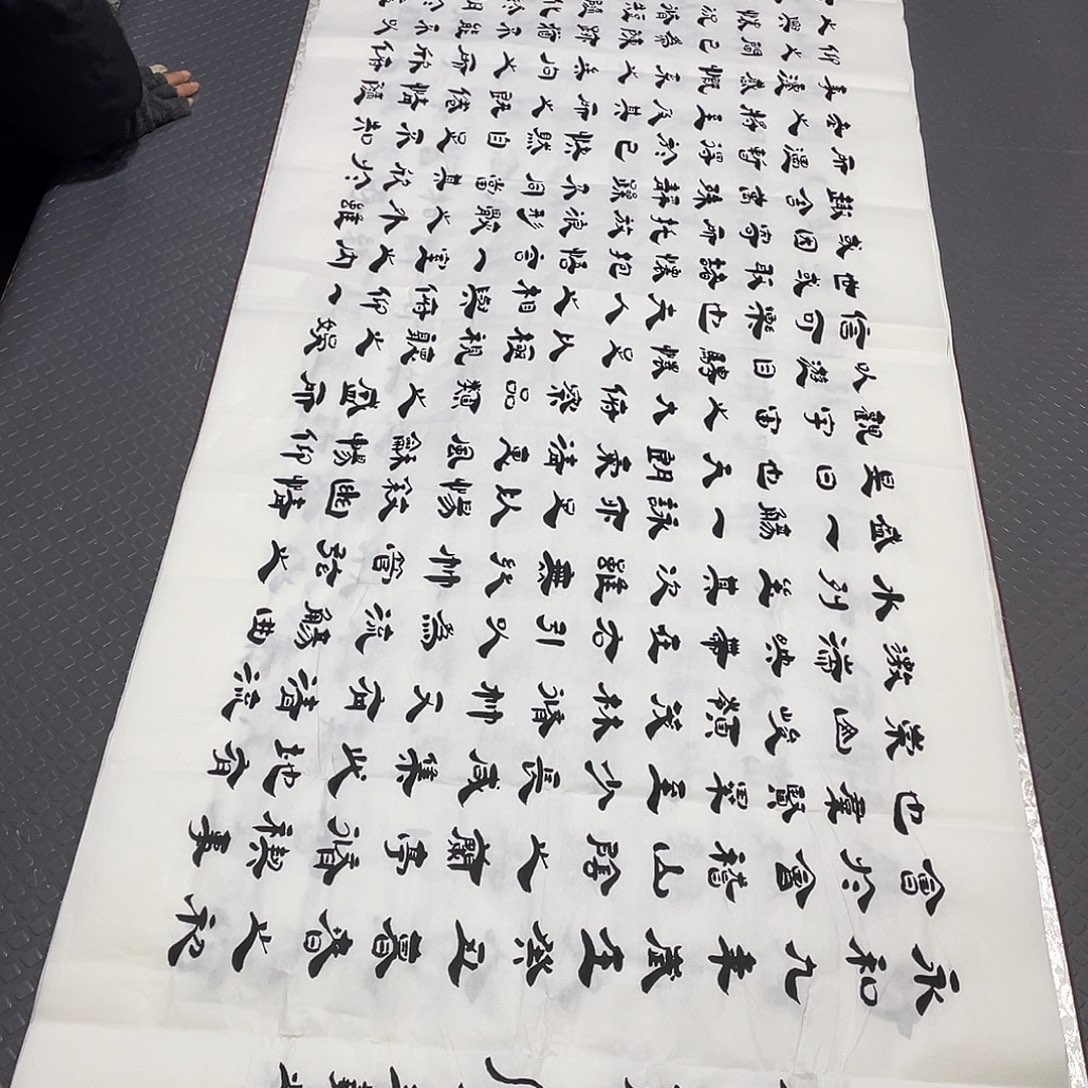 永和九年歲在癸丑暮春之初
會於會稽山陰之蘭亭脩禊事
也羣賢畢至少長咸集此地有
崇山峻領茂林脩竹又有清流
激湍映帶左右引以為流觴曲
水列坐其次雖無絲竹管弦之
盛一觴一詠亦足以暢敘幽情
是日也天朗氣清惠風和暢仰
觀宇宙之大俯察品類之盛所
以遊目騁懷足以極視聽之娛
信可樂也夫人之相與俯仰一
世或取諸懷抱悟言一室之內
或因寄所託放浪形骸之外雖
趣舍萬殊靜躁不同當其欣於
所遇暫得於己快然自足不知
老之將至及其所之既倦情隨